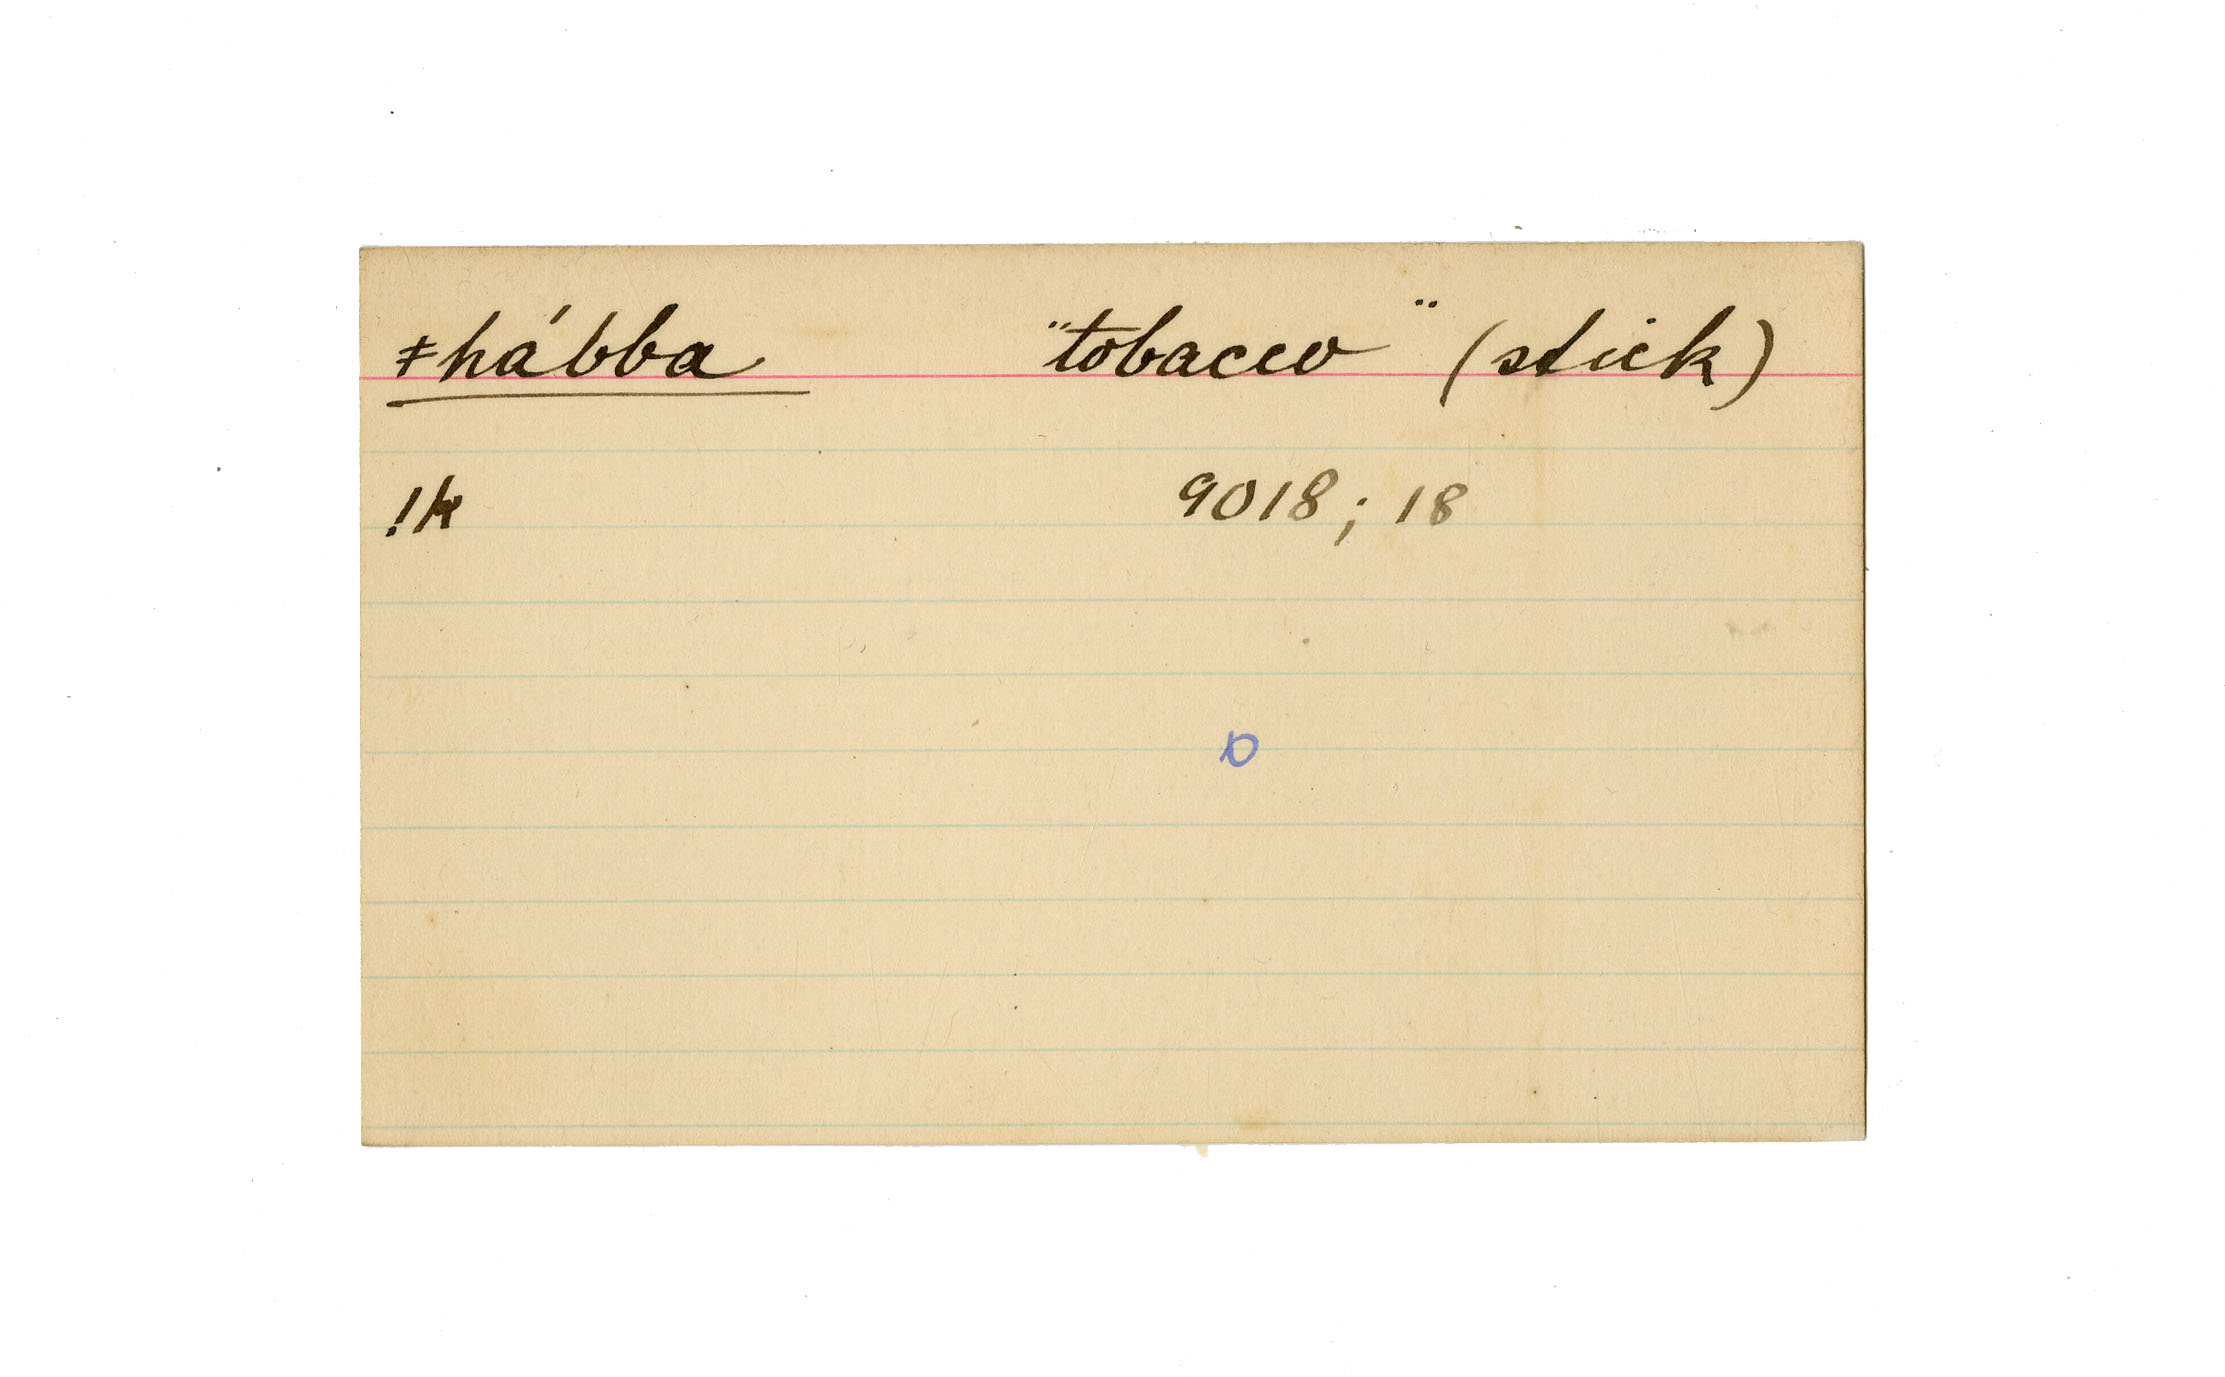 ǂhábba "tobacco" (stick)
!k 9018; 18